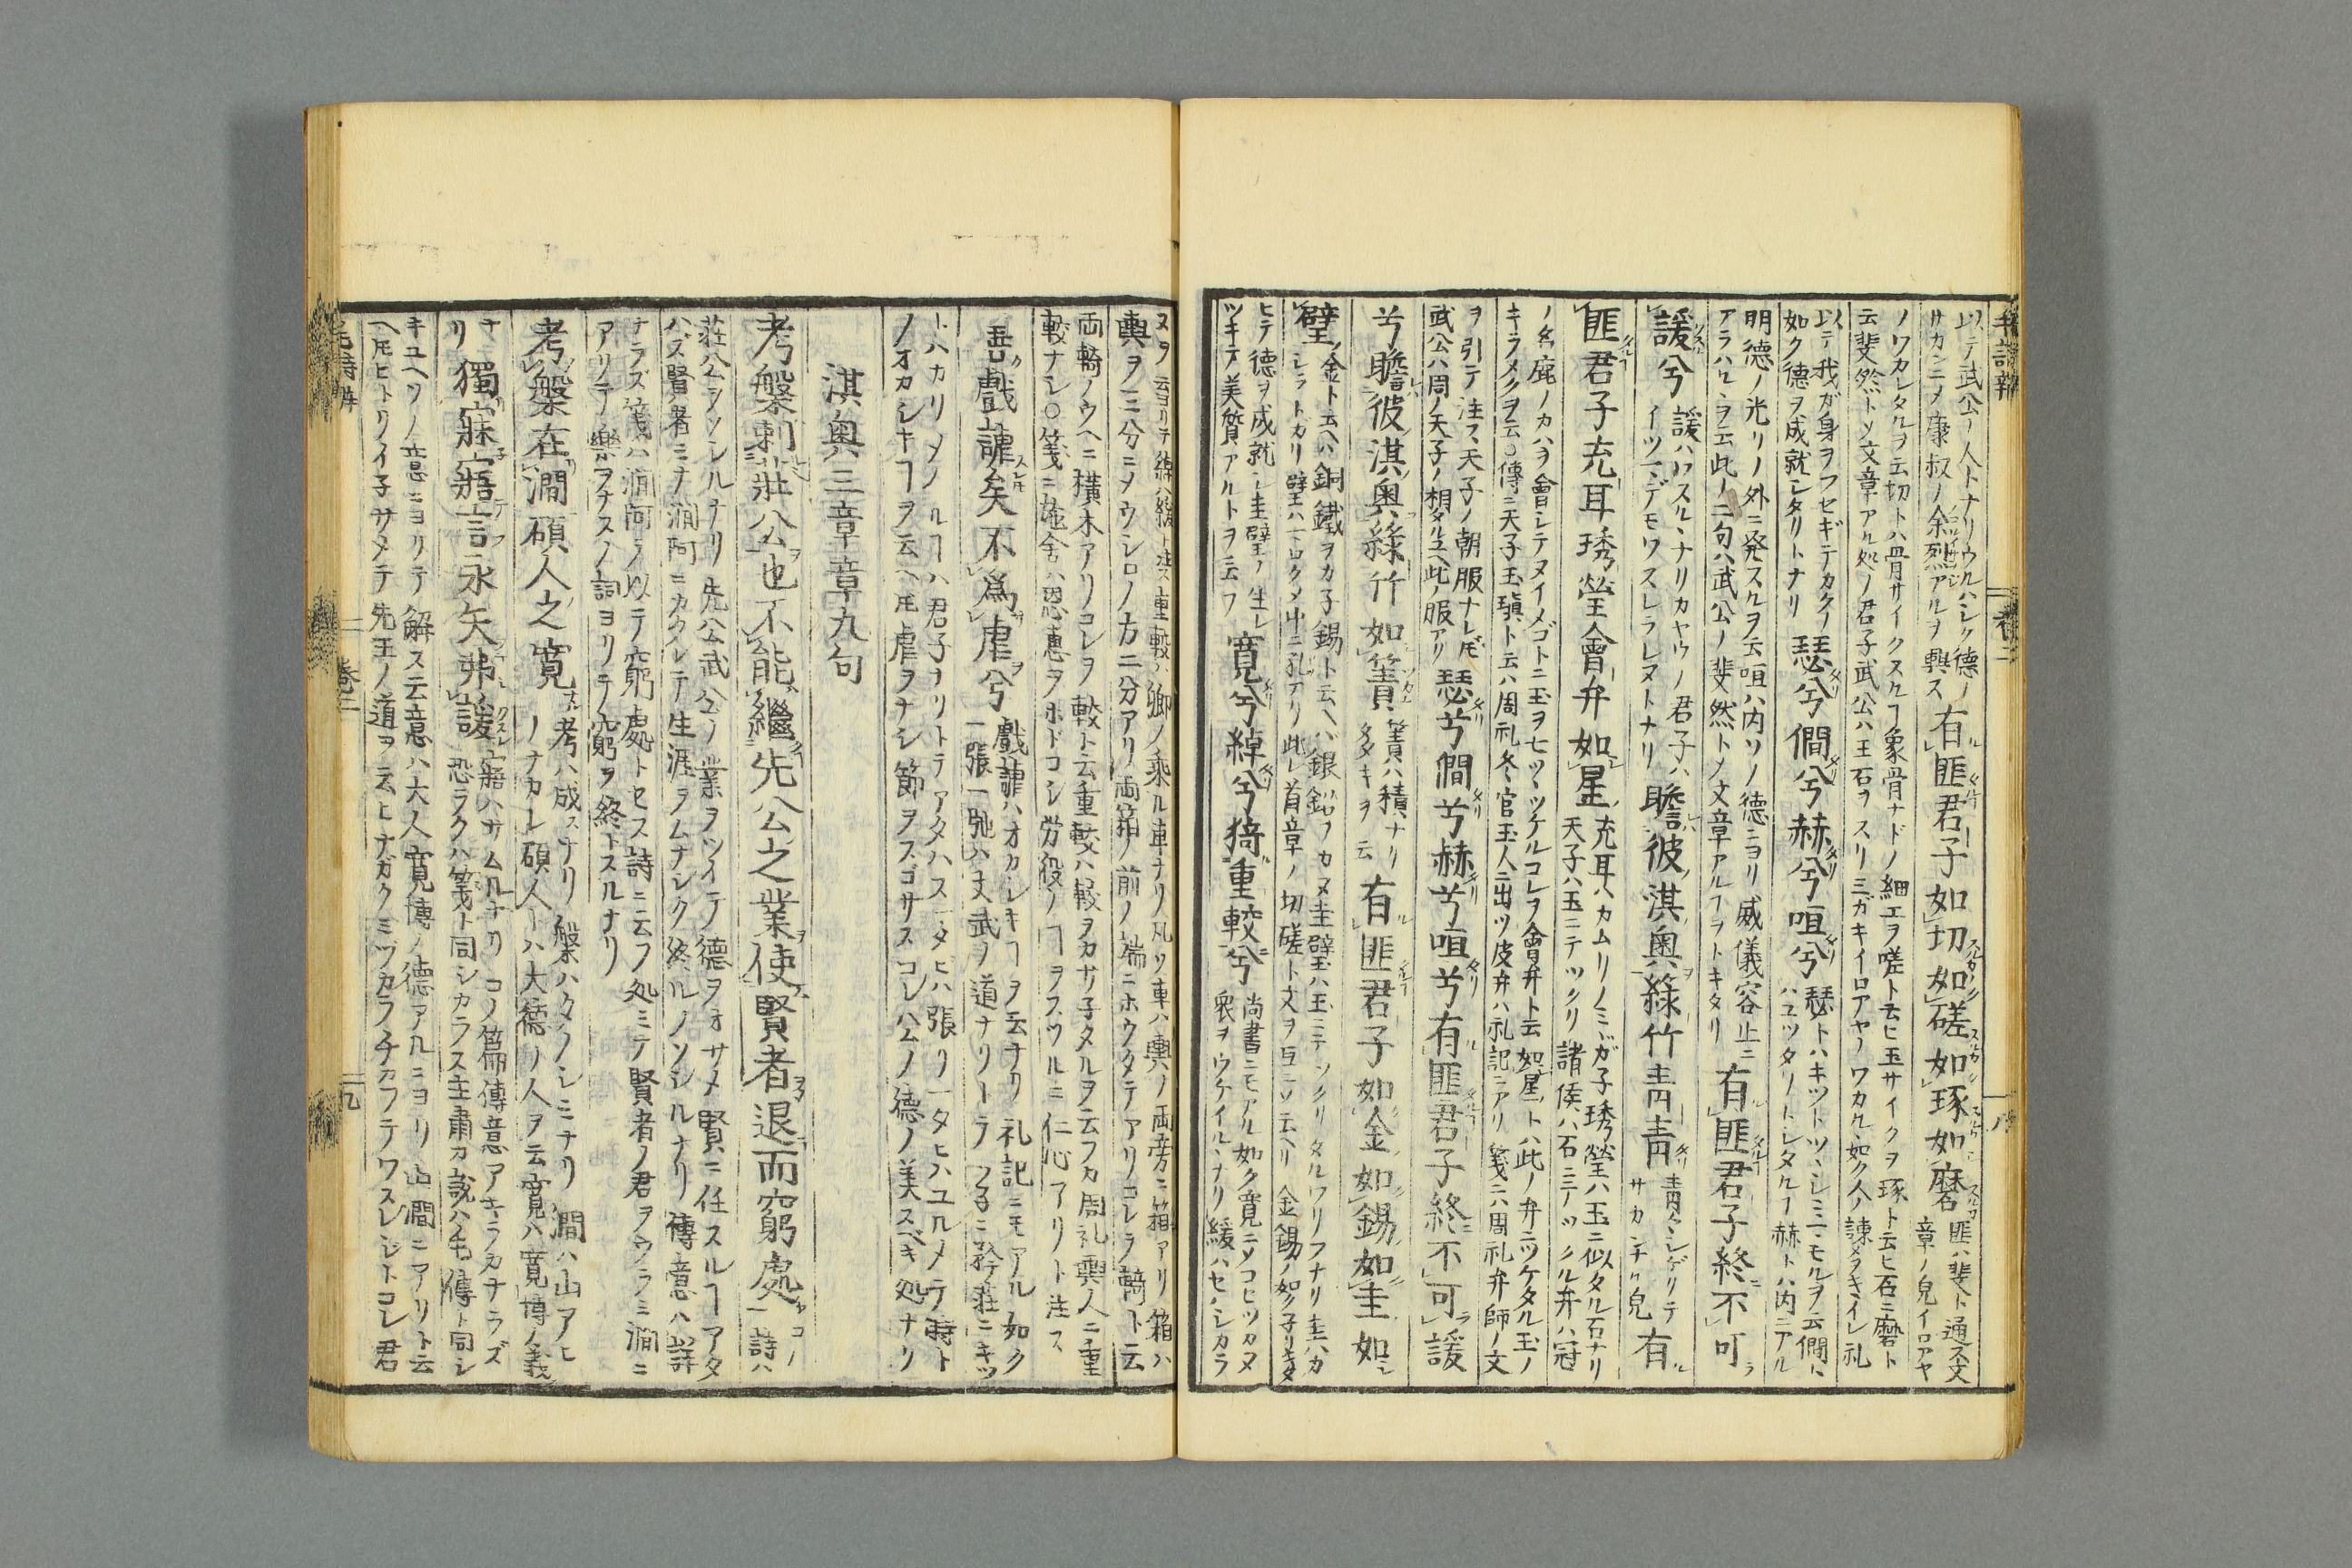 以テ武公ノ人トナリウルハシク德ノ
サカンニメ康叔ノ余烈アルヲ興ス
有匪君子如切如磋如琢如磨
匪ハ斐ト通ス文
章ノ皃イロアヤ
ノワカレタルヲ云切トハ骨サイクスルヿ象骨ナドノ細工ヲ嗟ト云ヒ玉サイクヲ琢ト云ヒ石ニ磨ト
云斐然トソ文章アル処ノ君子武公ハ王石ヲスリミガキイロアヤノワカル如ク人ノ諫ヲキイレ礼
以テ我ガ身ヲフセギテカクノ
如ク德ヲ成就シタリトナリ
瑟兮僩兮赫兮咺兮
瑟トハキツトツヽシミコモルヲ云僩ト
ハユツタリトシタルヿ赫トハ内ニアル
明德ノ光リノ外ニ発スルヲ云咺ハ内ソノ德ニヨリ威儀容止ニ
アラハルヽヲ云此ノ二句ハ武公ノ斐然トメ文章アルヿヲトキタリ
有匪君子終不可
諼兮
諼ハワスルヽナリカヤウノ君子ハ
イツマデモワスレラレヌトナリ
瞻彼淇奧綠竹靑靑
青々シゲリテ
サカンナル皃
有
匪君子充耳琇瑩會弁如星
充耳ハカムリノミヽガ子琇瑩ハ玉ニ似タル石ナリ
天子ハ玉ニテツクリ諸侯ハ石ニテツクル弁ハ冠
ノ名鹿ノカハヲ會シテヌイメゴトニ玉ヲ七ツヽツケルコレヲ會弁ト云如星トハ此ノ弁ニツケタル玉ノ
キラメクヲ云○傳ニ天子玉瑱ト云ハ周礼冬官玉人ニ出ツ皮弁ハ礼記ニアリ箋ニハ周礼弁師ノ文
ヲ引テ注ス天子ノ朝服ナレ𪜈
武公ハ周ノ天子ノ相タルユヘ此ノ服アリ
瑟兮僩兮赫兮咺兮有匪君子終不可諼
兮瞻彼淇奧綠竹如簀
簀ハ積ナリ
有匪君子如金如錫如圭如
璧
金ト云ヘハ銅鐵ヲカ子錫ト云ヘハ銀鉛ヲカヌ圭璧ハ玉ニテツクリタルワリフナリ圭ハカ
シラトカリ璧ハマロクメ中ニ孔アリ此レ首章ノ切磋ト文ヲ互ニソ云ヘリ金錫ノ如ク子リキタ
ヒテ德ヲ成就シ圭璧ノ生レ
ツキテ美質アルトヲ云フ
寬兮綽兮猗重較兮
尚書ニモアル如ク寛ニソコヒツカヌ
衆ヲウケイルヽナリ緩ハセハシカラ
ヌヲ云
輿ヲ三分ニソウシロノ方二分アリ両箱ノ前ノ端ニホウタテアリコレヲ輢ト云
両輢ノウヘニ横木アリコレヲ較ト云重較ハ較ヲカサ子タルヲ云フカ周礼輿人ニ重
較ナシ○箋ニ施舍ハ恩惠ヲホドコシ労役ノヿヲスツルニ仁心アリト注ス
善戲謔矣不爲虐兮
戲謔ハオカシキヿヲ云ナリ礼記ニモアル如ク
一張一弛ハ文武ノ道ナリトテ
トハカリメノルヿハ君子ナリトテアタハス一タビハ張リ一タヒハユルメテ時ト
ノオカシキヿヲ云ヘ𪜈虐ヲナシ節ヲスゴサスコレ公ノ德ノ美スベキ処ナリ
淇奧三章章九句
考槃刺莊公也不能繼先公之業使賢者退而窮處
コノ
詩ハ
莊公ヲソシルナリ先公武公ノ業ヲツイテ德ヲオサメ賢ニ任スルヿアタ
ハズ賢者ミナ澗阿ニカクレテ生涯ヲムナシク終ルノソシルナリ傳意ハ詳
ナラズ箋ハ澗阿ヲ以テ窮處トセス詩ニ云フ処ミテ賢者ノ君ヲウラミ澗ニ
アリテ樂ヲナスノ詞ヨリテ窮ヲ終トスルナリ
考槃在澗碩人之寬
考ハ成スナリ槃ハタノシミナリ澗ハ山アヒ
ノナカレ碩人トハ大德ノ人ヲ云寬ハ寛博ノ義
ナ
リ
獨寐寤言永矢弗諼
寤ハサムルナリコノ篇傳意アキラカナラズ
恐ラクハ箋ト同シカラス王肅カ説ハ毛傳ト同シ
キユヘソノ意ニヨリテ解ス云意ハ大人寛博ノ德アルニヨリ山澗ニアリト云
ヘ𪜈ヒトリイ子サメテ先王ノ道ヲ云ヒナガクミヅカラチカフテワスレジトコレ君
毛詩解
卷三
九